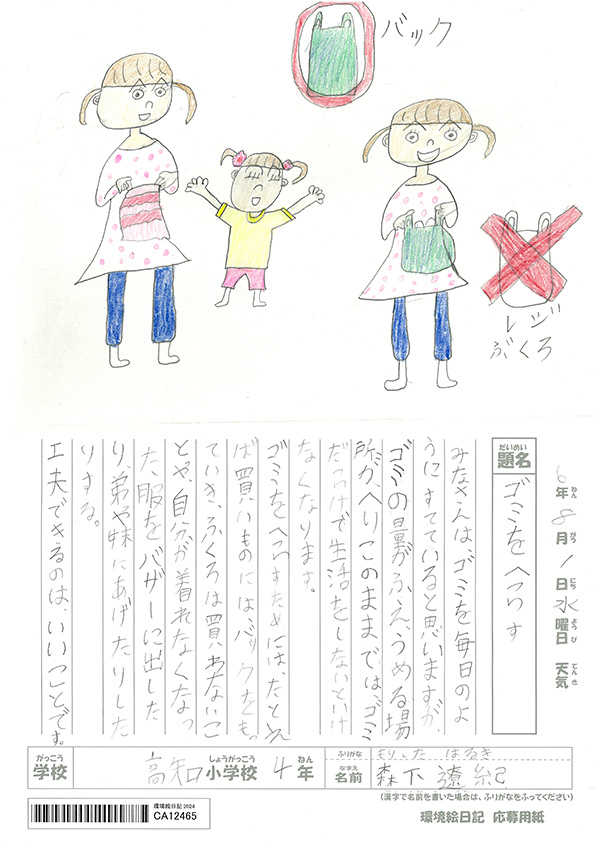 バック
レジ
ぶくろ
6年8月1日水曜日 天気
ねん がつ にち ようび てんき
だいめい
題名
ゴミをへらす
みなさんは、ゴミを毎日のよ
うにすてていると思いますが、
ゴミの量がふえ、うめる場
所がへりこのままでは、ゴミ
だらけで生活をしないといけ
なくなります。
ゴミをへらすためには、たとえ
ば買いものには、バックをも
っていき、ふくろは買わないこ
とや、自分が着れなくなっ
た、服をバザーに出した
り、弟や妹にあげたりした
りする。
工夫できるのは、いいことです。
がっこう しょうがっこう ねん
学校 高知小学校 4年
ふりがな もりした はるき
なまえ
名前 森下 遼紀
(漢字で名前を書いた場合は、ふりがなをふってください)
環境絵日記2024
CA12465
環境絵日記 応募用紙